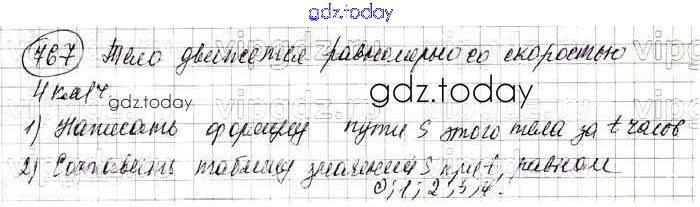 gdz.today
767 Тело движется равномерно со скоростью
4 км/ч.
gdz.today
1) Написать формулу пути S этого тела за t часов
2) Составить таблицу значений S при t, равном
0; 1; 2; 3; 4.
gdz.today